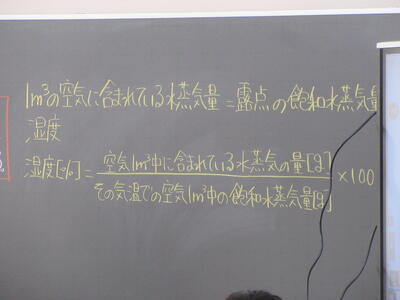 1m³の空気に含まれている水蒸気量=露点の飽和水蒸気量
湿度
湿度[%]=空気1m³中に含まれている水蒸気の量[g]/その気温での空気1m³中の飽和水蒸気量[g]×100